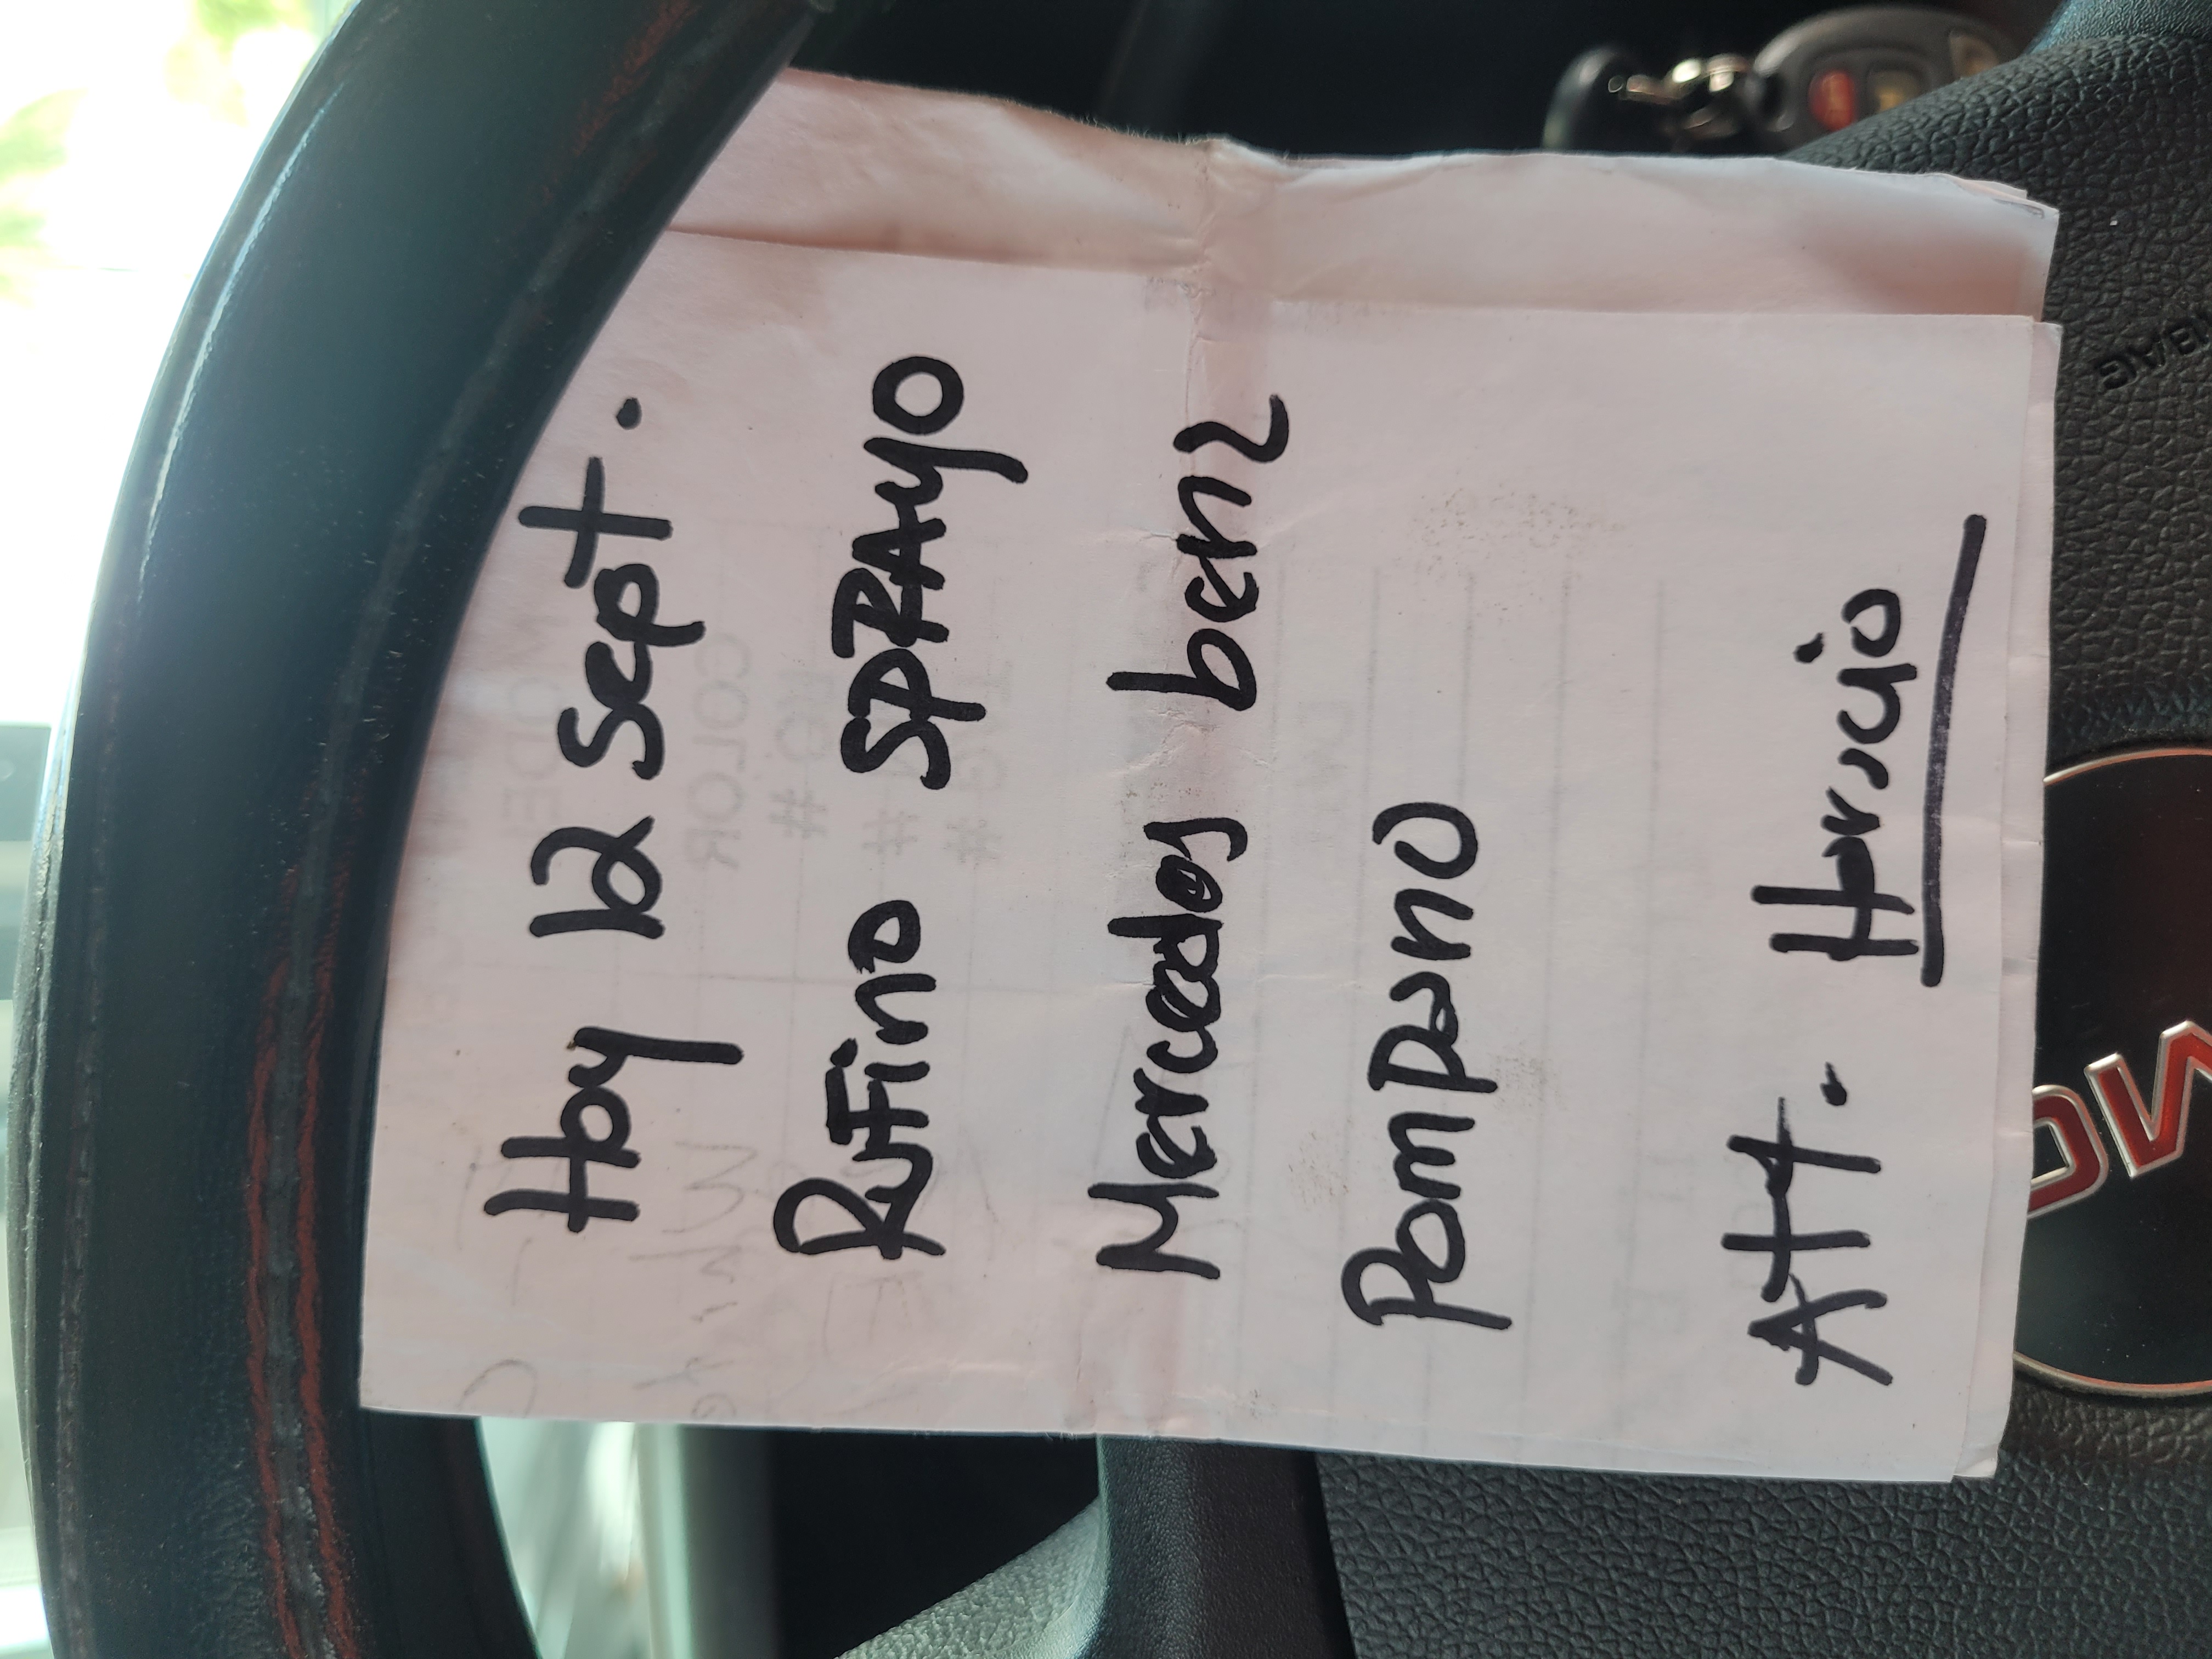 Hoy 12 Sept.
Rufino SPRAyo
Mercedes benz
Pompano
Att. Horacio
COLOR